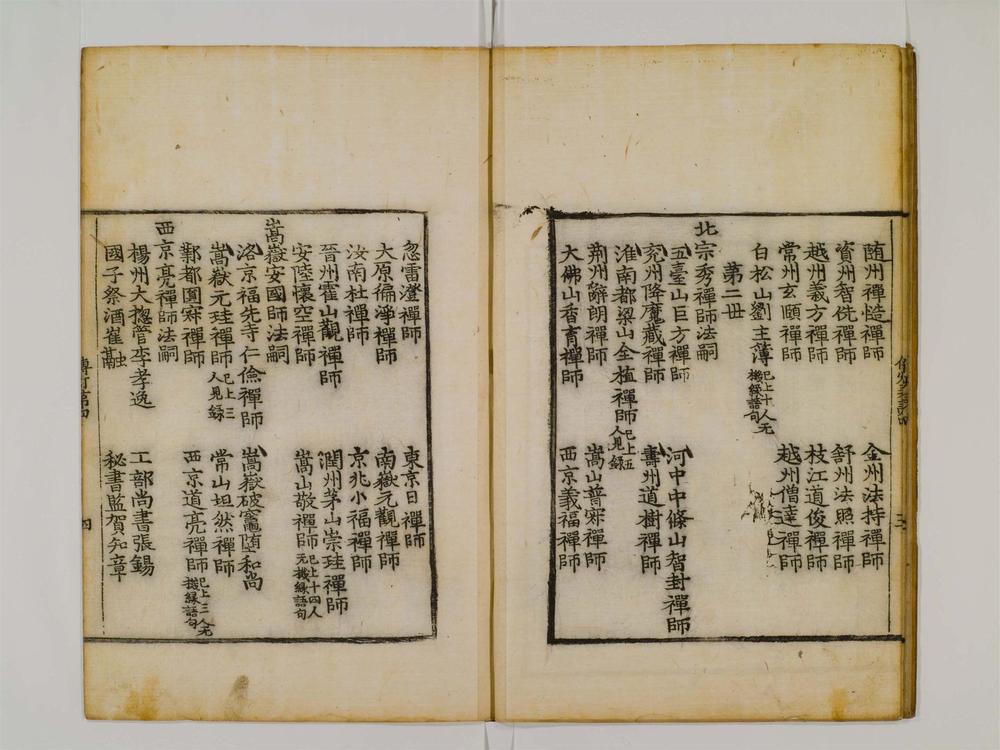 随州禪慥禪師 金州法持禪師
資州智侁禪師 舒州法照禪師
越州義方禪師 枝江道俊禪師
常州玄頤禪師 越州僧達禪師
白松山劉主薄 已上十人无機緣語句
第二世
北宗秀禪師法嗣
五臺山巨方禪師 河中中條山智封禪師
兖州降魔藏禪師 壽州道樹禪師
淮南都梁山全植禪師 已上五人見録
荆州辭朗禪師 嵩山普寂禪師
大佛山香育禪師 西京義福禪師
忽雷澄禪師 東京日禪師
大原徧淨禪師 南嶽元觀禪師
汝南杜禪師 京兆小福禪師
晉州霍山觀禪師 潤州茅山崇珪禪師
安陸懷空禪師 嵩山敬禪師 已上十四人无機緣語句
嵩嶽安國師法嗣
洛京福先寺仁儉禪師 嵩嶽破竈墮和尚
嵩嶽元珪禪師 已上三人見録 常山坦然禪師
鄴都圓寂禪師 西京道亮禪師 已上三人无機緣語句
西京亮禪師法嗣
楊州大揔管李孝逸 工部尚書張錫
國子祭酒崔融 秘書監賀知章